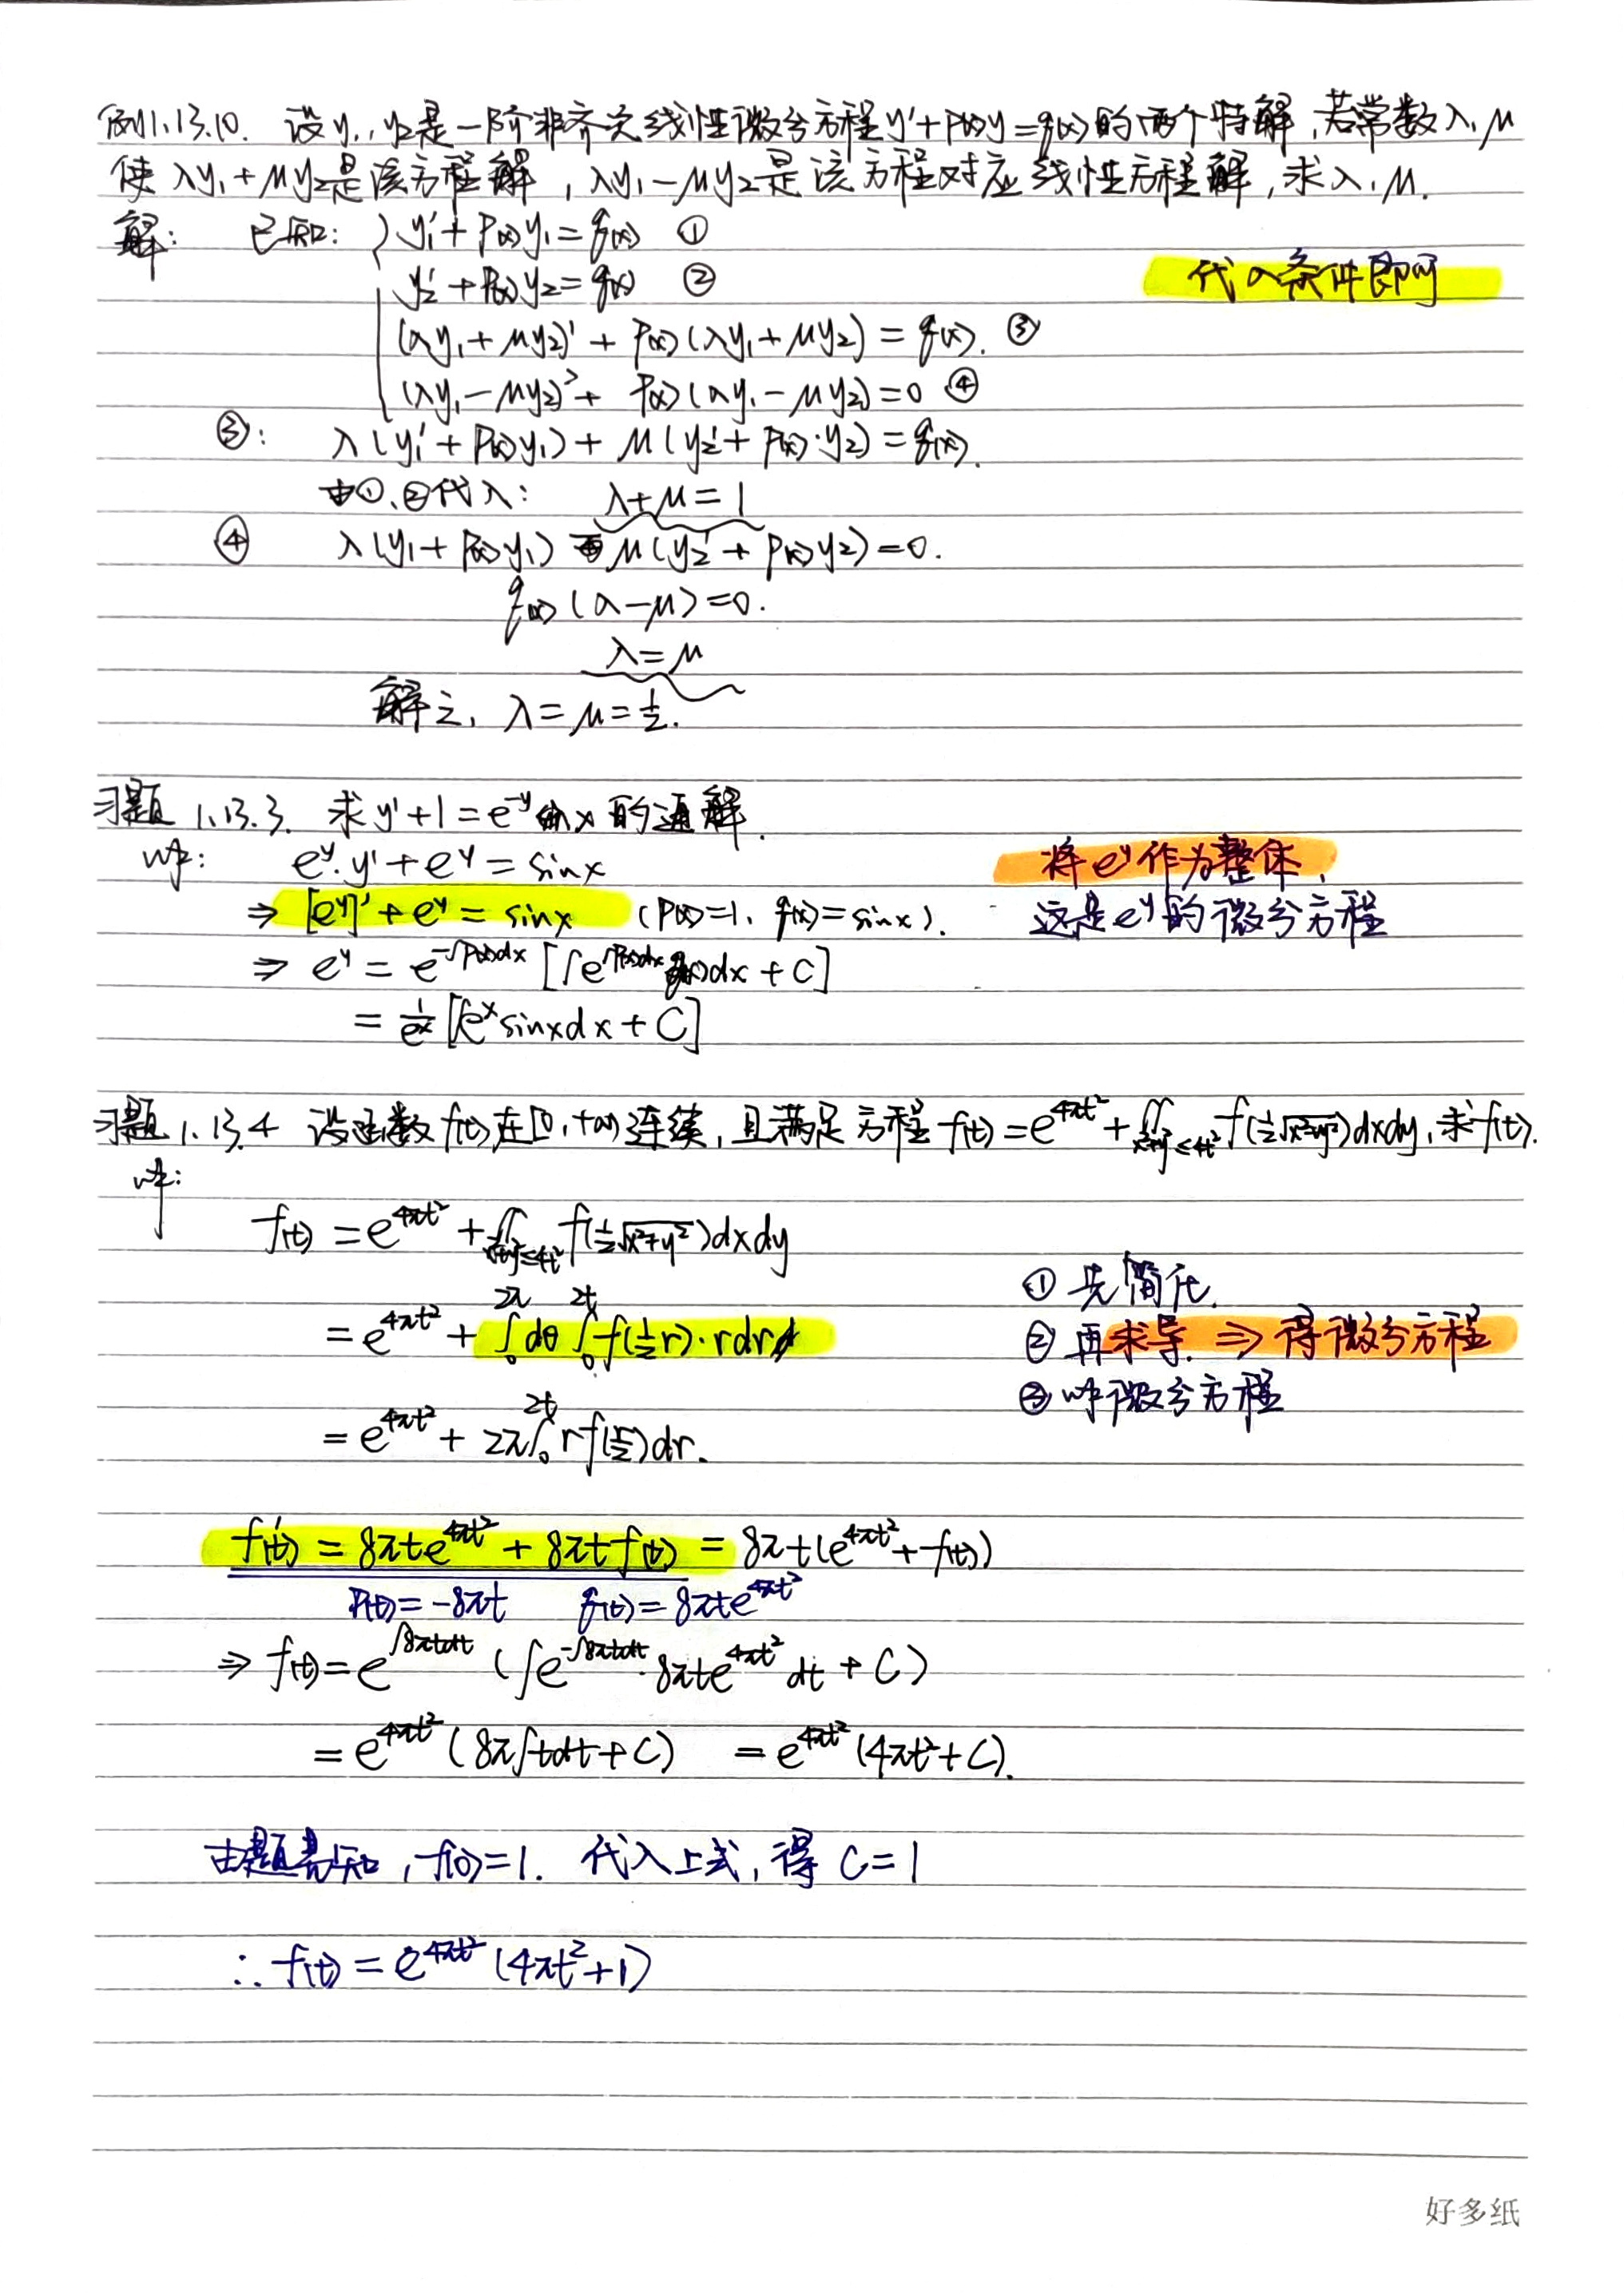 例1.13.10. 设y₁, y₂是一阶非齐次线性微分方程y'+P(x)y=q(x)的两个特解,若常数λ,μ
使λy₁+μy₂是该方程解,λy₁-μy₂是该方程对应线性方程解,求λ,μ.
解: 已知: y₁'+P(x)y₁=q(x) ①
y₂'+P(x)y₂=q(x) ②
代入条件即可
(λy₁+μy₂)'+P(x)(λy₁+μy₂)=q(x). ③
(λy₁-μy₂)'+P(x)(λy₁-μy₂)=0 ④
③: λ(y₁'+P(x)y₁)+μ(y₂'+P(x)·y₂)=q(x).
由①、②代入: λ+μ=1
④ λ(y₁+P(x)y₁)-μ(y₂'+P(x)y₂)=0.
q(x)(λ-μ)=0.
λ=μ
解之, λ=μ=½.
习题1.13.3. 求y'+1=e^{-y}sinx的通解.
解: e^y·y'+e^y=sinx
将e^y作为整体,
⇒ [e^y]'+e^y=sinx (P(x)=1, q(x)=sinx).
这是e^y的微分方程
⇒ e^y=e^{-∫P(x)dx}[∫e^{∫P(x)dx}q(x)dx+C]
=1/e^x[∫e^x sinxdx+C]
习题1.13.4 设函数f(t)在[0,+∞)连续,且满足方程f(t)=e^{4πt²}+∬_{x²+y²≤4t²}f(½√(x²+y²))dxdy,求f(t).
解:
f(t)=e^{4πt²}+∬_{x²+y²≤4t²}f(½√(x²+y²))dxdy
① 先简化.
=e^{4πt²}+∫₀^{2π}dθ∫₀^{2t}f(½r)·rdr
② 再求导. ⇒ 得微分方程
③ 解微分方程
=e^{4πt²}+2π∫₀^{2t}rf(r/2)dr.
f'(t)=8πte^{4πt²}+8πtf(t)=8πt(e^{4πt²}+f(t))
P(t)=-8πt q(t)=8πte^{4πt²}
⇒ f(t)=e^{∫8πtdt}(∫e^{-∫8πtdt}·8πte^{4πt²}dt+C)
=e^{4πt²}(8π∫tdt+C) =e^{4πt²}(4πt²+C).
由题意知,f(0)=1. 代入上式,得 C=1
∴f(t)=e^{4πt²}(4πt²+1)
好多纸